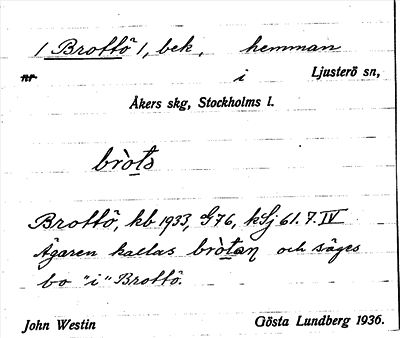 / Brottö /, bek. hemman
nr i Ljusterö sn,
Åkers skg, Stockholms l.
bròts
Brottö, kb 1933, G76, kSj 61.7.IV
Ägaren kallas bròtan och säges
bo "i" Brottö.
John Westin Gösta Lundberg 1936.